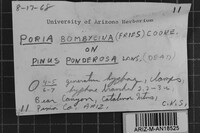 8-17-68
11
University of Arizona Herbarium
PORIA BOMBYCINA (FRIES) COOKE.
ON
PINUS PONDEROSA LAWS. (DEAD)
4-5
6-7 generative hyphae, clamps,
hyphae 2.2-3
Bear Canyon, Catalina Mtns,
Pima Co. ARIZ.
11
ARIZ-M-AN18525